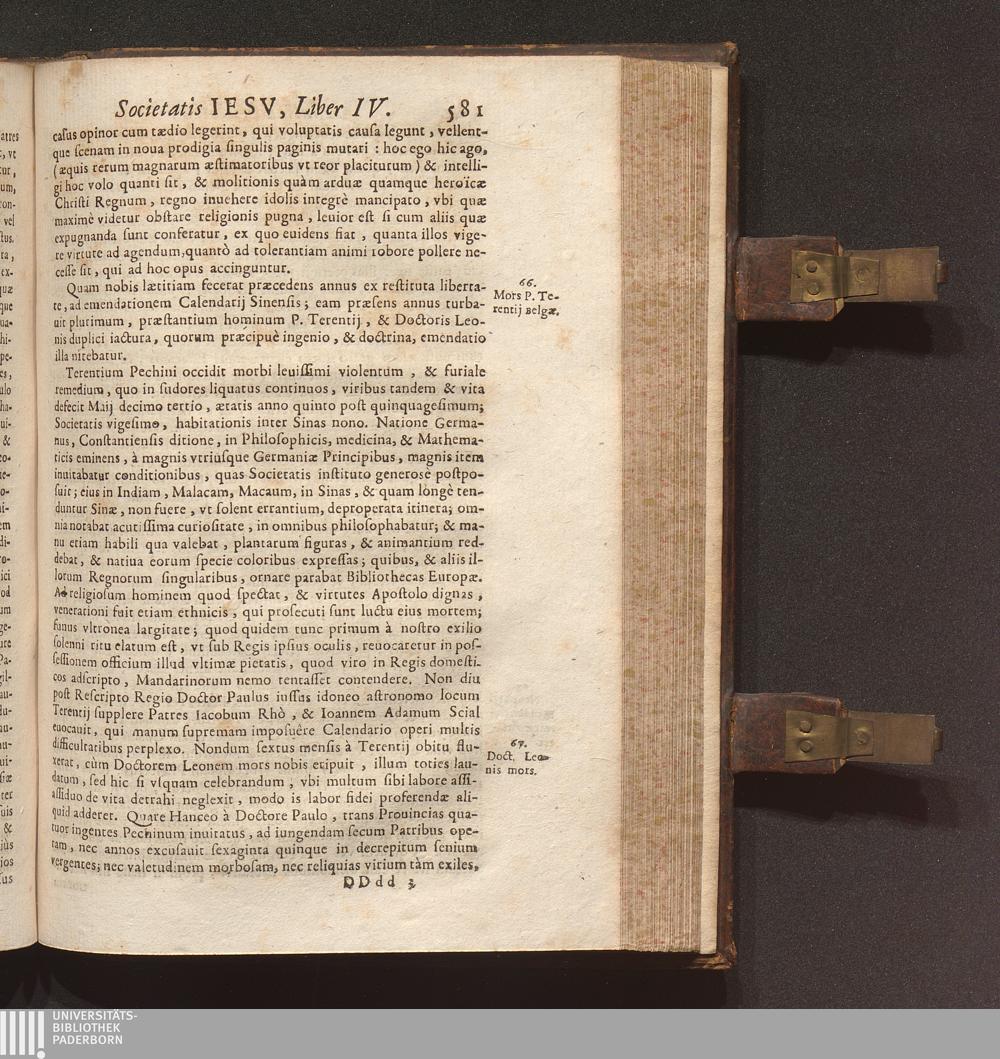 Societatis IESV, Liber IV. 581
casus opinor cum tædio legerint, qui voluptatis causa legunt, vellent-
que scenam in noua prodigia singulis paginis mutari : hoc ego hic ago,
(æquis rerum magnarum æstimatoribus vt reor placiturum) & intelli-
gi hoc volo quanti sit, & molitionis quàm arduæ quamque heroïcæ
Christi Regnum, regno inuehere idolis integrè mancipato, vbi quæ
maximè videtur obstare religionis pugna, leuior est si cum aliis quæ
expugnanda sunt conferatur, ex quo euidens fiat, quanta illos vige-
re virtute ad agendum, quantò ad tolerantiam animi robore pollere ne-
cesse sit, qui ad hoc opus accinguntur.
Quam nobis lætitiam fecerat præcedens annus ex restituta liberta-
te, ad emendationem Calendarij Sinensis; eam præsens annus turba-
uit plurimum, præstantium hominum P. Terentij, & Doctoris Leo-
nis duplici iactura, quorum præcipuè ingenio, & doctrina, emendatio
illa nitebatur.
66.
Mors P. Te-
rentij Belgæ.
Terentium Pechini occidit morbi leuissimi violentum, & furiale
remedium, quo in sudores liquatus continuos, viribus tandem & vita
defecit Maij decimo tertio, ætatis anno quinto post quinquagesimum;
Societatis vigesimo, habitationis inter Sinas nono. Natione Germa-
nus, Constantiensis ditione, in Philosophicis, medicina, & Mathema-
ticis eminens, à magnis vtriusque Germaniæ Principibus, magnis item
inuitabatur conditionibus, quas Societatis instituto generosè postpo-
suit; eius in Indiam, Malacam, Macaum, in Sinas, & quam longè ten-
duntur Sinæ, non fuere, vt solent errantium, deproperata itinera; om-
nia notabat acutissima curiositate, in omnibus philosophabatur; & ma-
nu etiam habili qua valebat, plantarum figuras, & animantium red-
debat, & natiua eorum specie coloribus expressas; quibus, & aliis il-
lorum Regnorum singularibus, ornare parabat Bibliothecas Europæ.
Ad religiosum hominem quod spectat, & virtutes Apostolo dignas,
venerationi fuit etiam ethnicis, qui prosecuti sunt luctu eius mortem;
funus vltronea largitate; quod quidem tunc primum à nostro exilio
solenni ritu elatum est, vt sub Regis ipsius oculis, reuocaretur in pos-
sessionem officium illud vltimæ pietatis, quod viro in Regis domesti-
cos adscripto, Mandarinorum nemo tentasset contendere. Non diu
post Rescripto Regio Doctor Paulus iussus idoneo astronomo locum
Terentij supplere Patres Iacobum Rhò, & Ioannem Adamum Scial
euocauit, qui manum supremam imposuêre Calendario operi multis
difficultatibus perplexo. Nondum sextus mensis à Terentij obitu flu-
xerat, cùm Doctorem Leonem mors nobis eripuit, illum toties lau-
datum, sed hic si vsquam celebrandum, vbi multum sibi labore assi-
assiduo de vita detrahi neglexit, modo is labor fidei proferendæ ali-
quid adderet. Quare Hanceo à Doctore Paulo, trans Prouincias qua-
tuor ingentes Pechinum inuitatus, ad iungendam secum Patribus ope-
ram, nec annos excusauit sexaginta quinque in decrepitum senium
vergentes; nec valetudinem morbosam, nec reliquias virium tàm exiles,
67.
Doct. Leo-
nis mors.
DDdd 3
UNIVERSITÄTS-
BIBLIOTHEK
PADERBORN